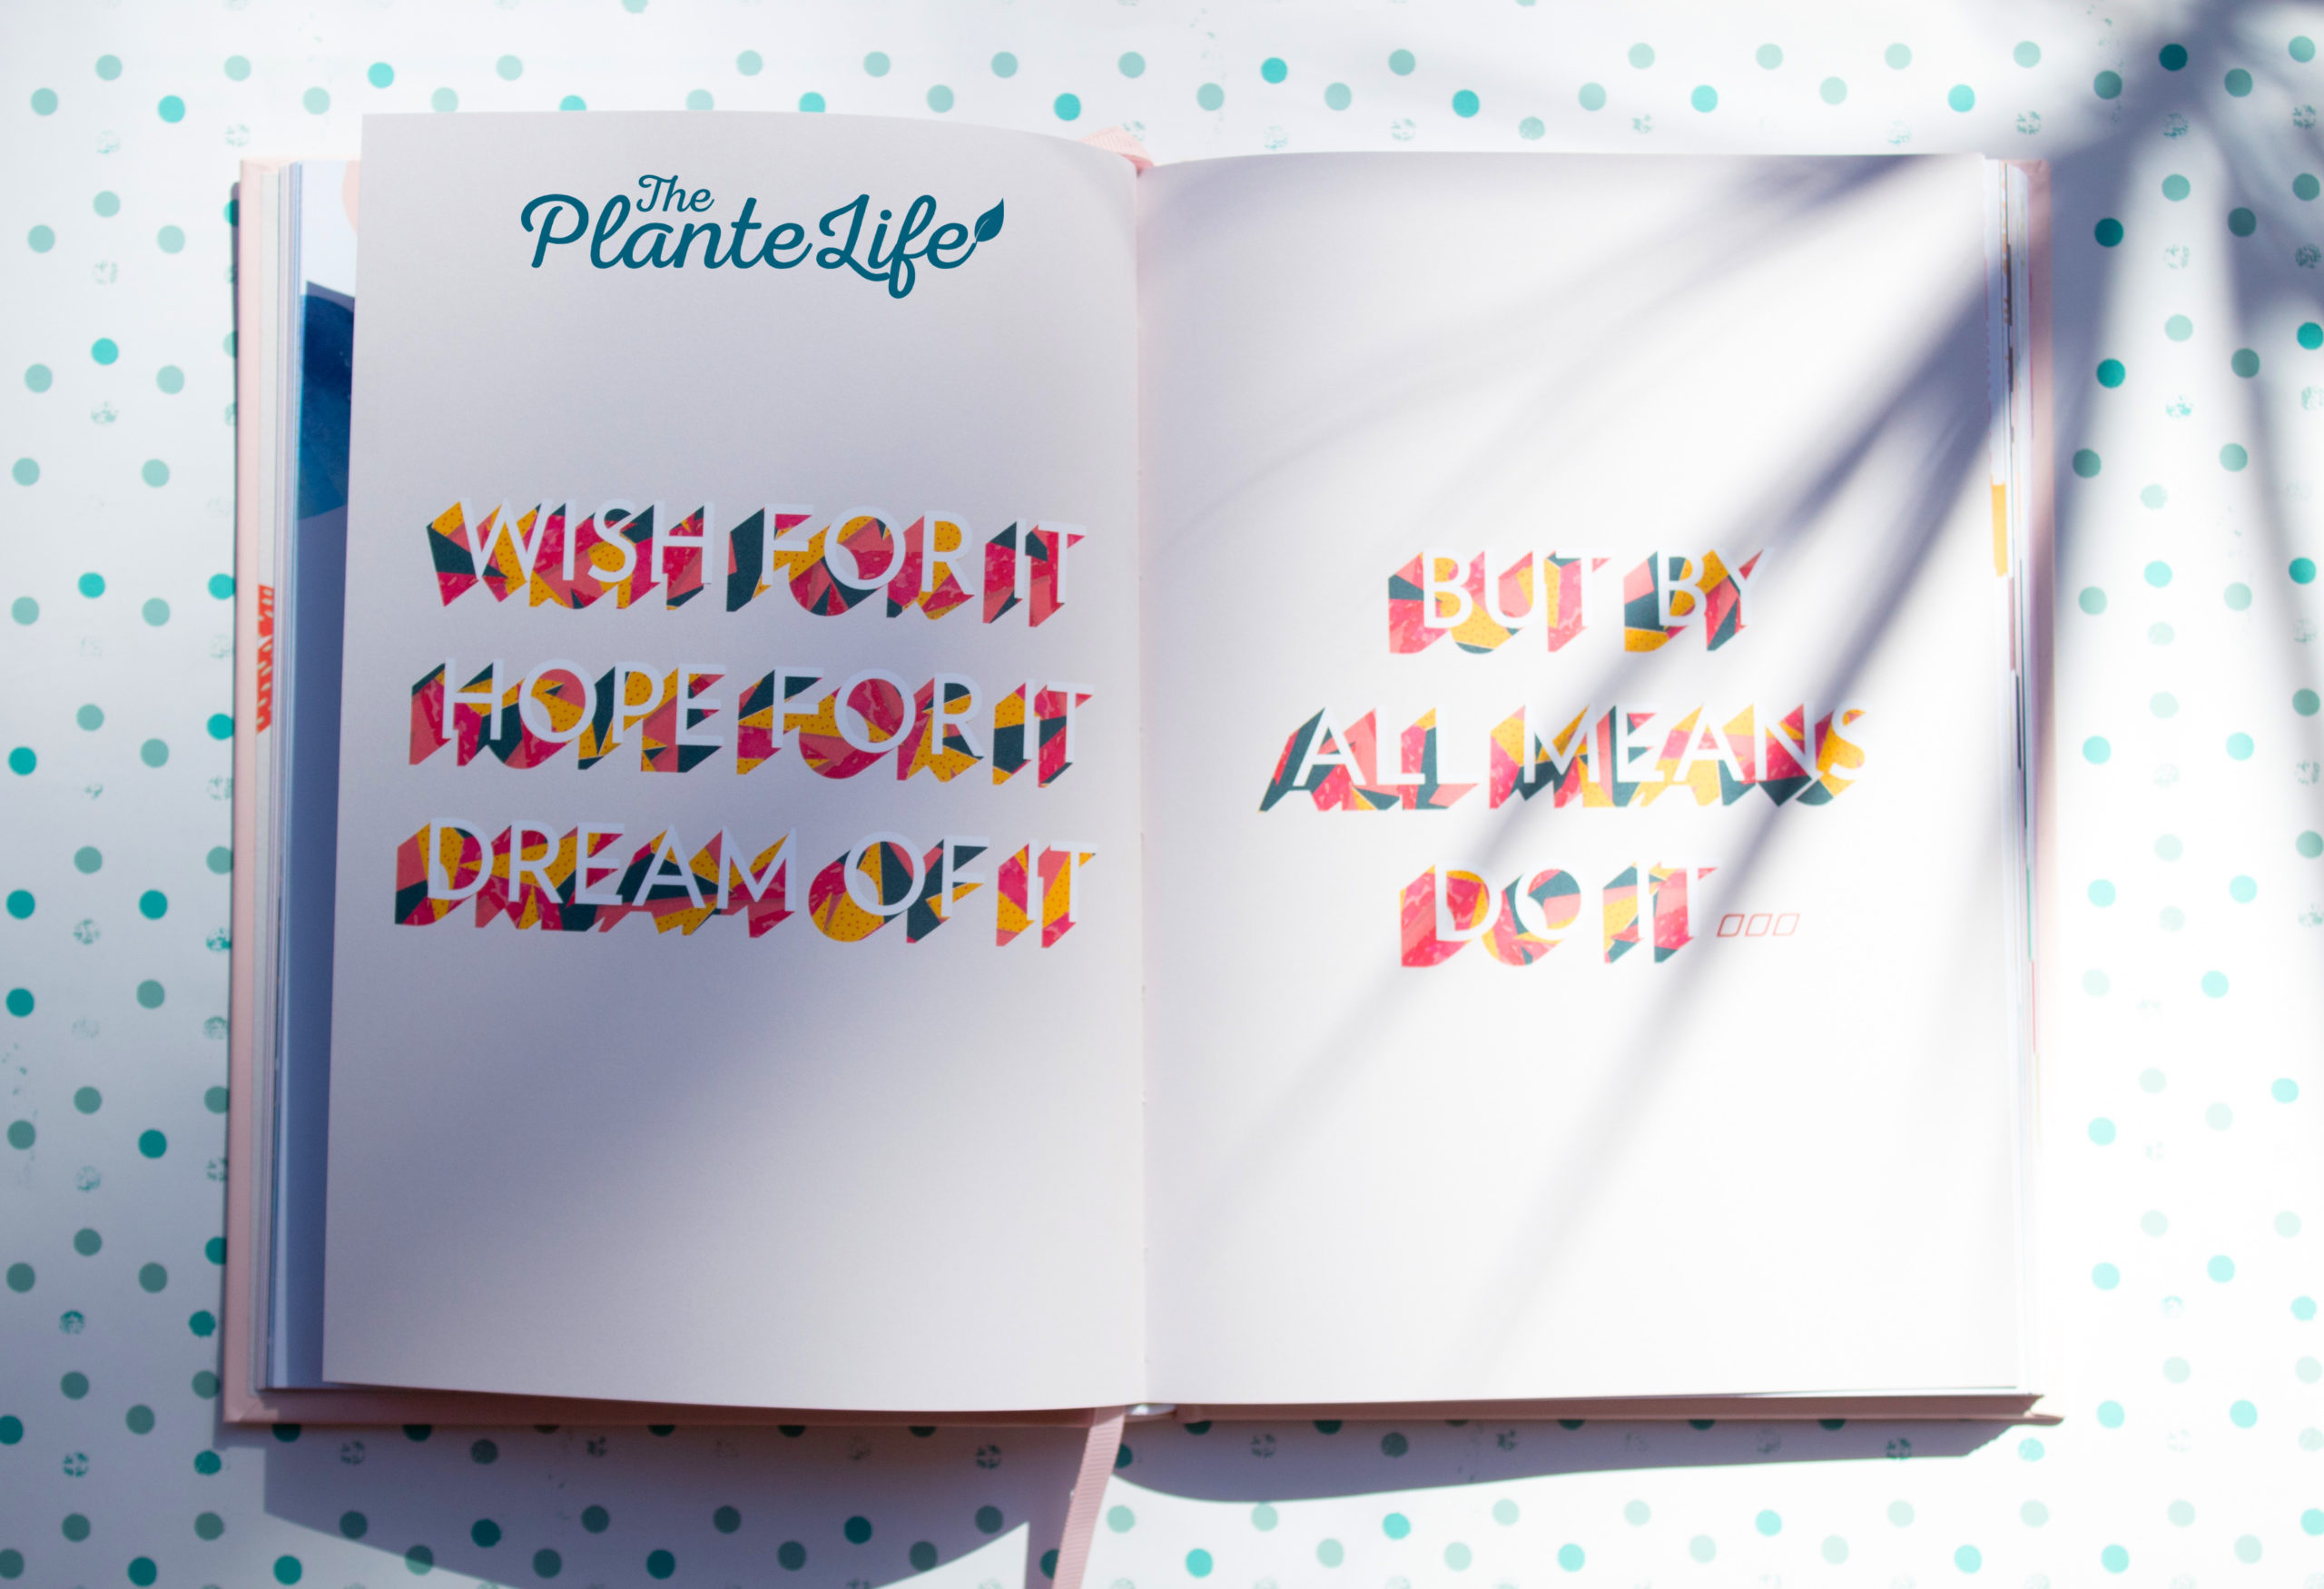 The
Plante Life
WISH FOR IT
HOPE FOR IT
DREAM OF IT
BUT BY
ALL MEANS
DO IT